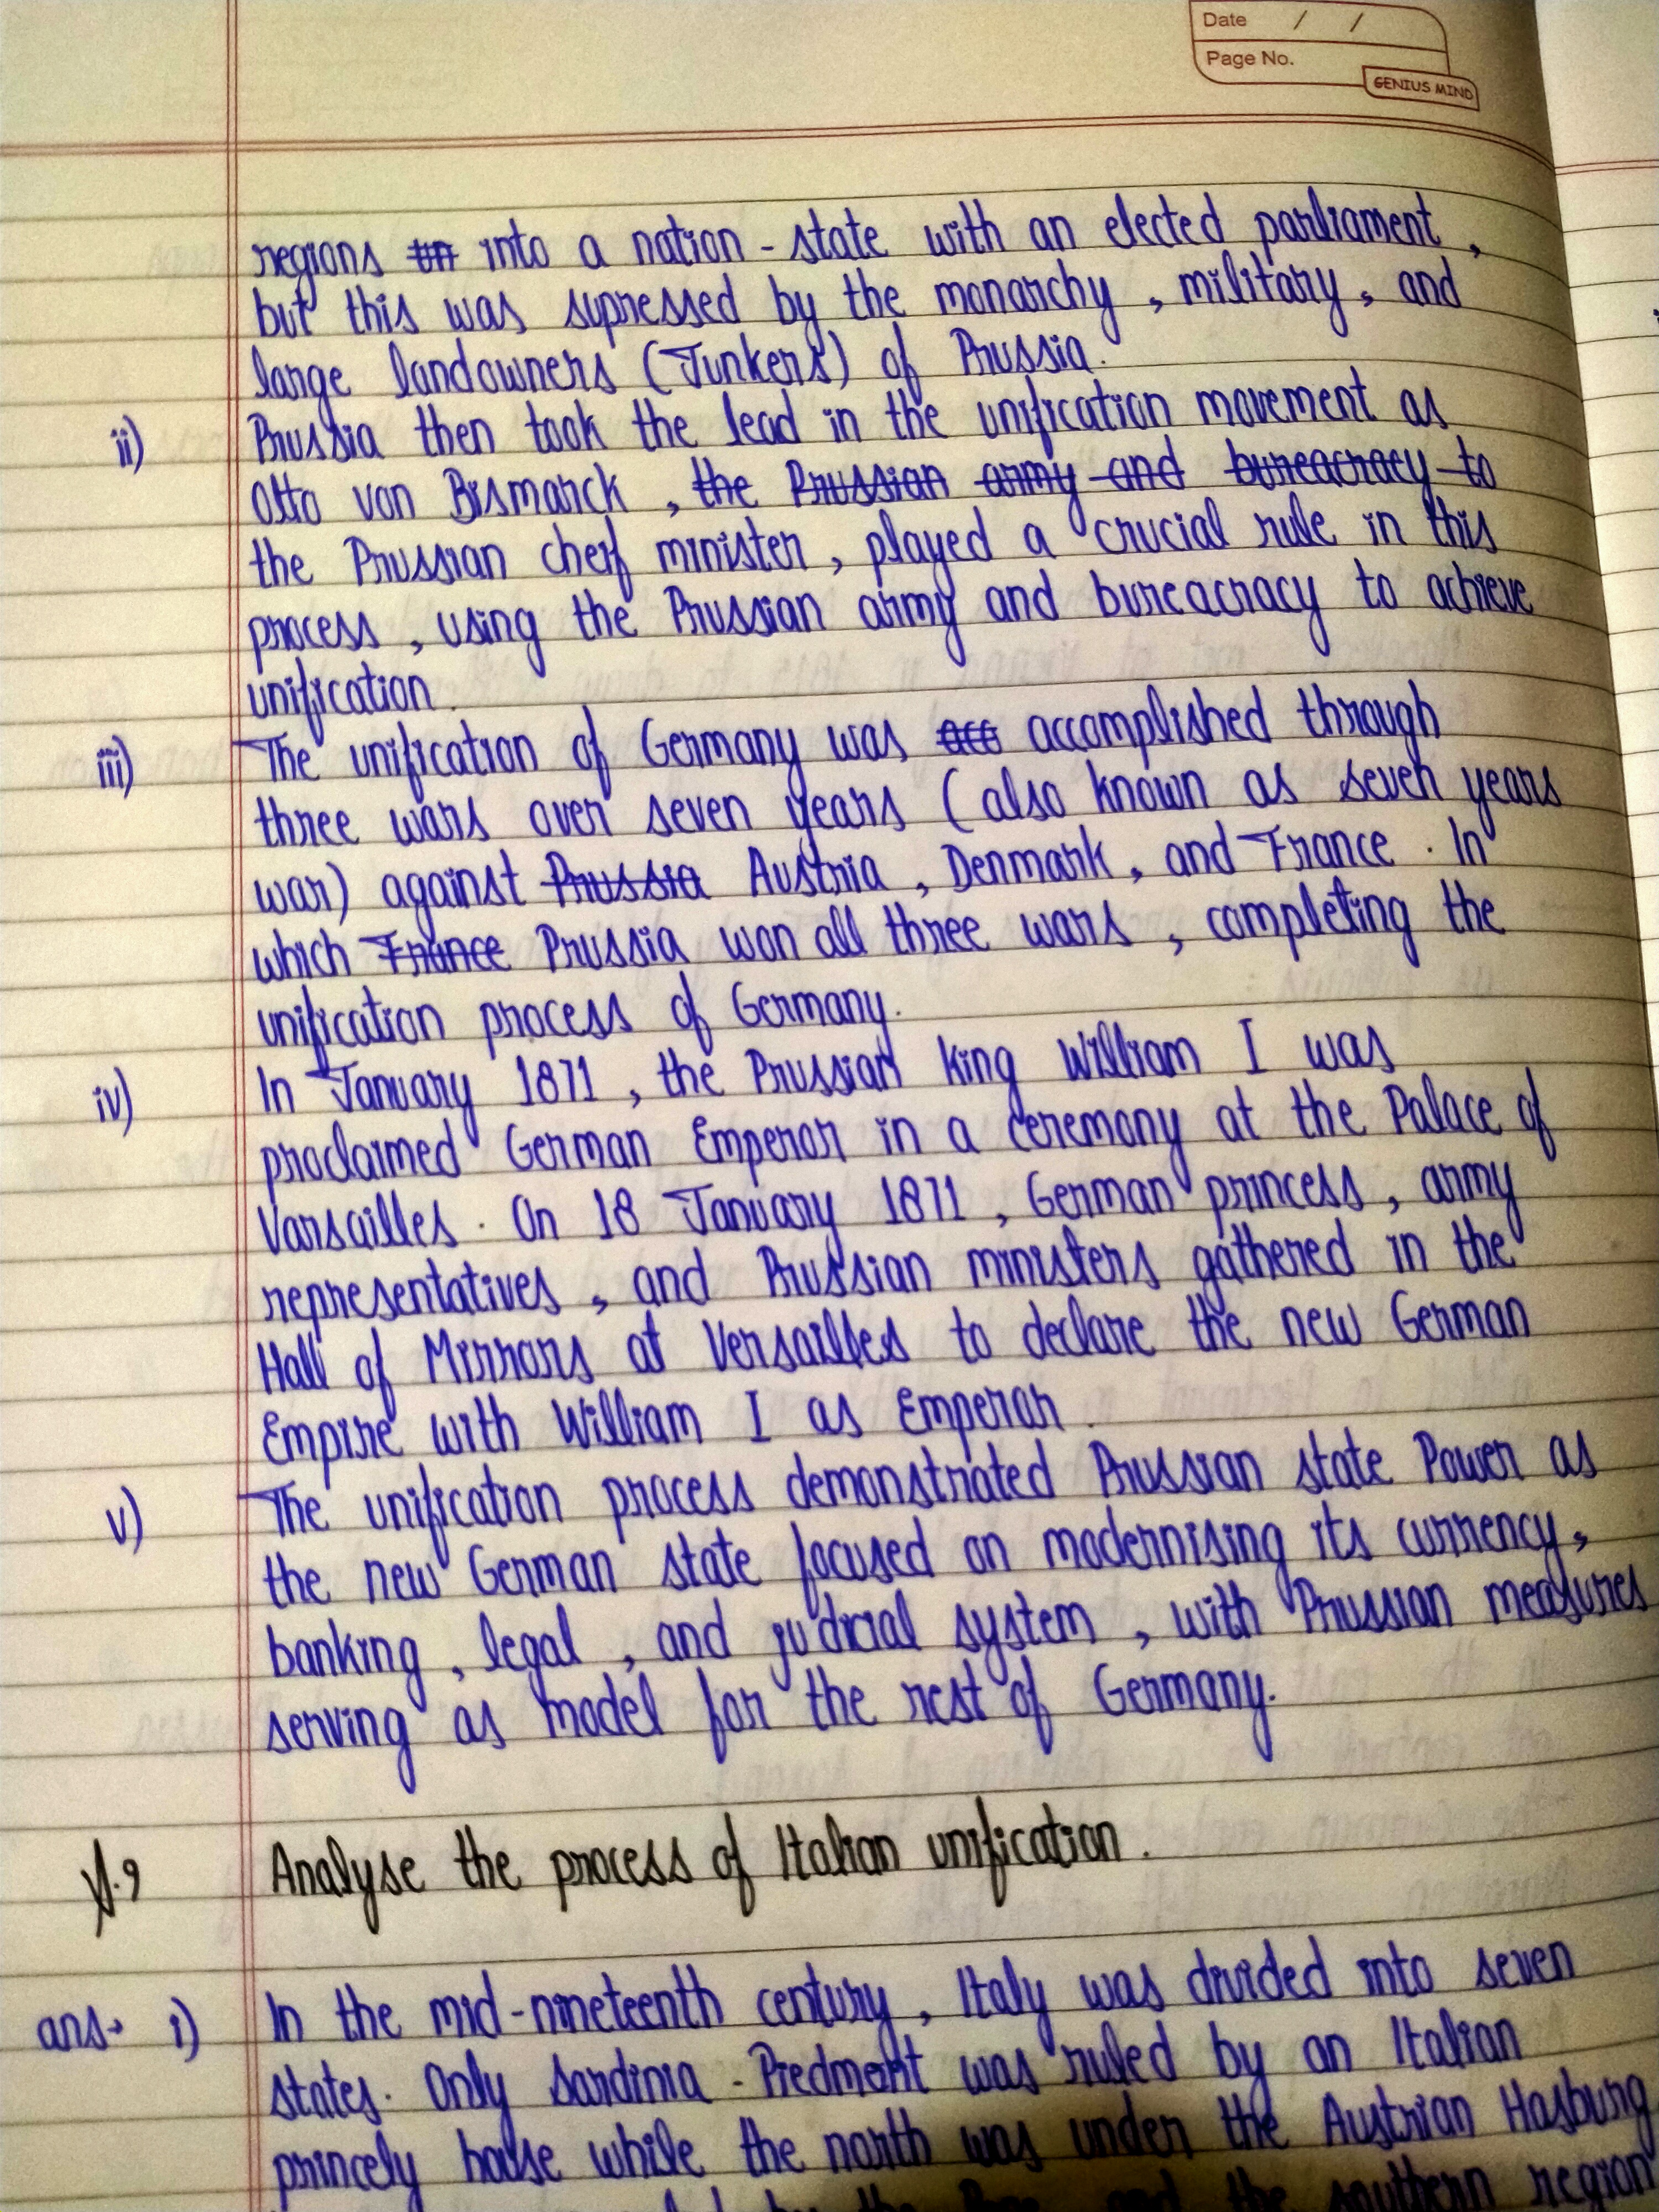 Date / /
Page No.
GENIUS MIND
regions un into a nation - state with an elected parliament ,
but this was supressed by the monarchy , military , and
large landowners (Junkers) of Prussia.
ii) Prussia then took the lead in the unification movement as
Otto von Bismarck , the Prussian army and bureacracy to
the Prussian cheif minister , played a crucial rule in this
process , using the Prussian army and bureacracy to achieve
unification.
iii) The unification of Germany was acc accomplished through
three wars over seven years (also known as seven years
war) against Prussia Austria , Denmark , and France . In
which France Prussia won all three wars , completing the
unification process of Germany.
iv) In January 1871 , the Prussian King William I was
proclaimed German Emperor in a ceremony at the Palace of
Varsailles . On 18 January 1871 , German princess , army
representatives , and Prussian ministers gathered in the
Hall of Mirrors at Versailles to declare the new German
Empire with William I as Emperor .
v) The unification process demonstrated Prussian state Power as
the new German state focused on modernising its currency ,
banking , legal , and judicial system , with Prussian measures
serving as model for the rest of Germany.
9 Analyse the process of Italian unification .
ans→ i) In the mid-nineteenth century , Italy was divided into seven
states. Only Sardinia - Piedmont was ruled by an Italian
princely house while the north was under the Austrian Hasburg
by the Pope and the southern region